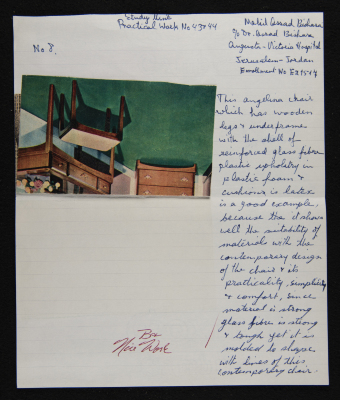 Study Unit
Practical Work No 43+44
No 8.
c/o Dr. Assad Bishara
Augusta-Victoria Hospital
Jerusalem-Jordan
Enrollment No
This angelina chair
which has wooden
legs & underframe
with the shell of
reinforced glass fibre
plastic upholstry in
plastic foam &
cushions is latex
is a good example,
because it shows
well the suitability of
materials with the
contemporary design
of the chair & its
practicality, simplicity
& comfort, since
material is strong
glass fibre is strong
& tough yet it is
molded to shape
with lines of this
contemporary chair.
B+
Nice Work